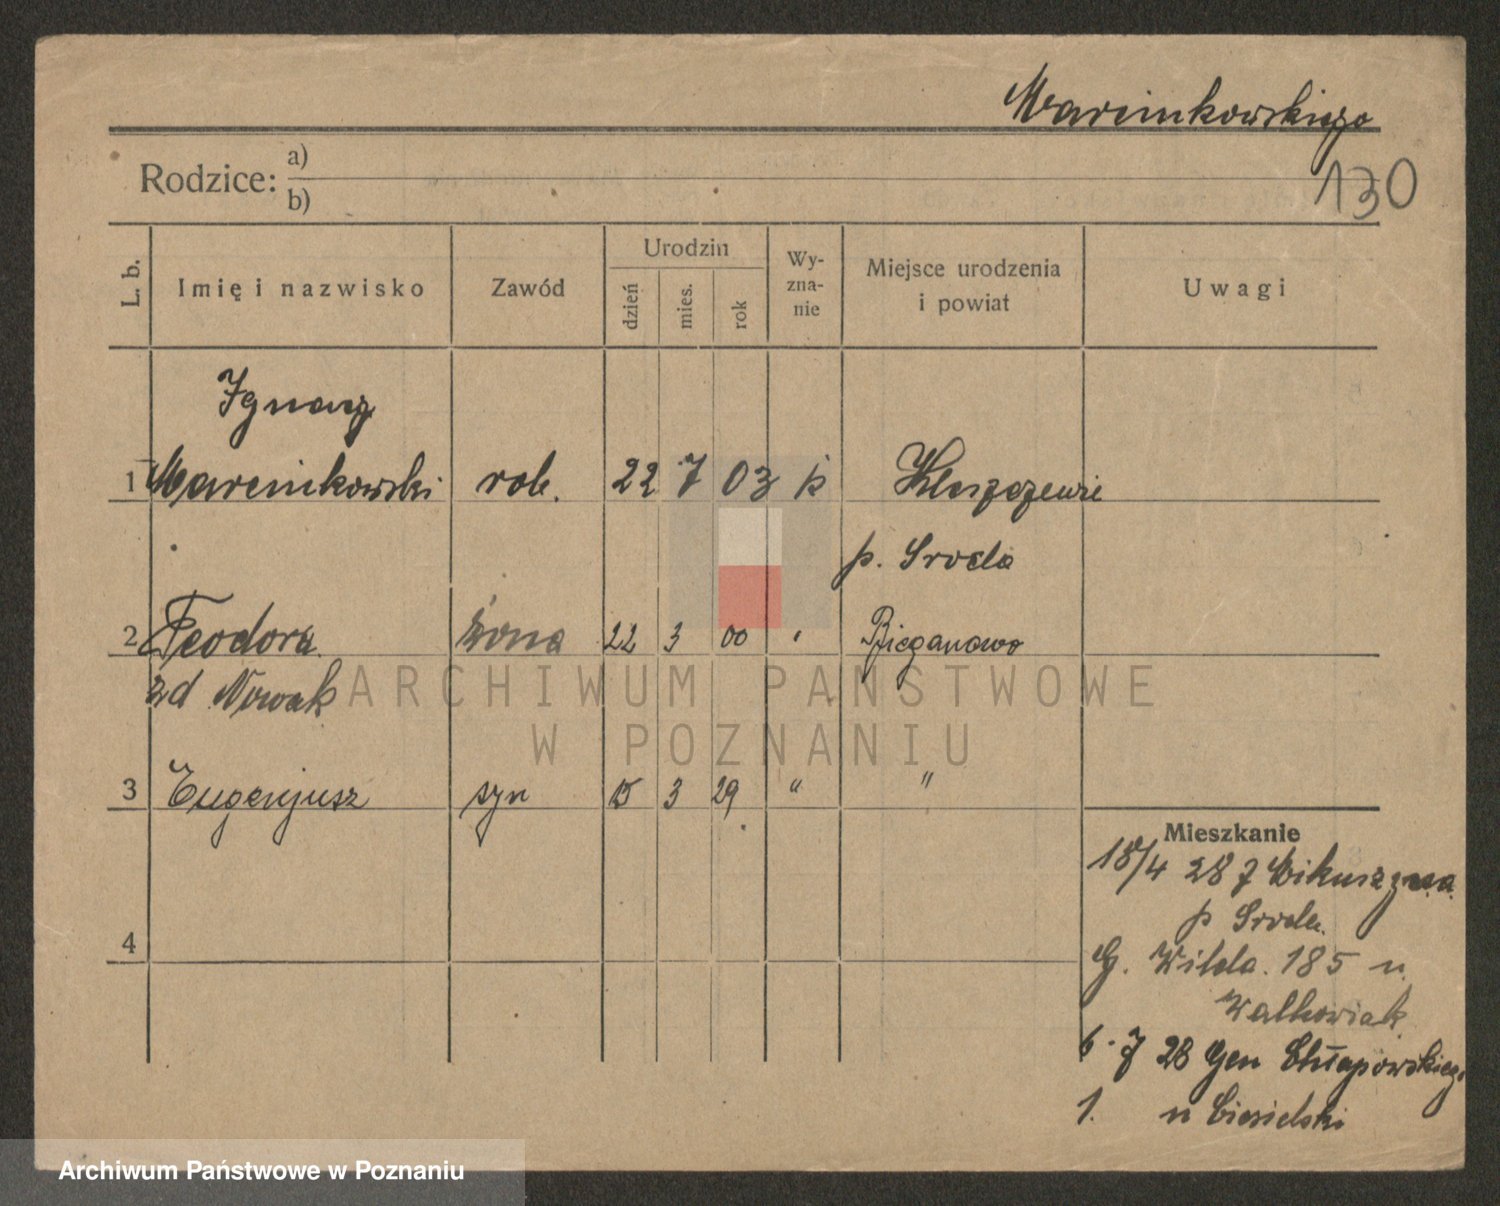 Marcinkowskiego
130
Rodzice: a)
b)
L. b.
Imię i nazwisko
Zawód
Urodzin
dzień
mies.
rok
Wy-
zna-
nie
Miejsce urodzenia
i powiat
Uwagi
Ignacy
1 Marcinkowski rob. 22 7 03 k
p. Sroda
2 Teodora żona 22 3 00 " Bieganowo
zd Nowak
3 Eugenjusz syn 15 3 29 " "
4
Mieszkanie
18/4 28 z
p Sroda.
G. Wilda. 185 u
Walkowiak
6. 7 28 Gen Chłapowskiego
1. u Ciesielski
ARCHIWUM PAŃSTWOWE
W POZNANIU
Archiwum Państwowe w Poznaniu